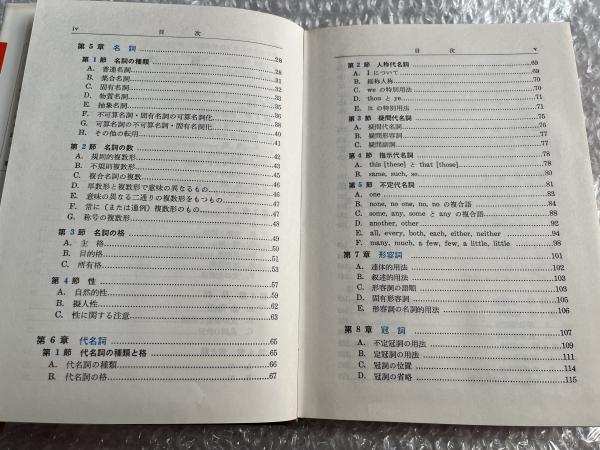 iv
目次
第5章 名詞 28
第1節 名詞の種類 28
A. 普通名詞 28
B. 集合名詞 31
C. 固有名詞 33
D. 物質名詞 34
E. 抽象名詞 35
F. 不可算名詞・固有名詞の可算名詞化 36
G. 可算名詞の不可算名詞・固有名詞化 39
H. その他の転用 40
第2節 名詞の数 41
A. 規則的複数形 41
B. 不規則複数形 43
C. 複合名詞の複数 45
D. 単数形と複数形で意味の異なるもの 46
E. 意味の異なる二通りの複数形をもつもの 47
F. 常に(または通例)複数形のもの 47
G. 称号の複数形 48
第3節 名詞の格 49
A. 主格 50
B. 目的格 51
C. 所有格 53
第4節 性 57
A. 自然的性 57
B. 擬人性 62
C. 性に関する注意 63
第6章 代名詞 65
第1節 代名詞の種類と格 65
A. 代名詞の種類 66
B. 代名詞の格 67
目次
v
第2節 人称代名詞 69
A. I について 69
B. 総称人称 70
C. we の特別用法 70
D. thou と ye 71
E. it の特別用法 71
第3節 疑問代名詞 75
A. 疑問代名詞 75
B. 疑問形容詞 76
C. 疑問副詞 77
第4節 指示代名詞 78
A. this [these] と that [those] 78
B. same, such, so 80
第5節 不定代名詞 81
A. one 83
B. none, no one, no, no の複合語 84
C. some, any, some と any の複合語 88
D. another, other 92
E. all, every, both, each, either, neither 94
F. many, much, a few, few, a little, little 98
第7章 形容詞 101
A. 連体的用法 102
B. 叙述的用法 103
C. 形容詞の語順 103
D. 固有形容詞 105
E. 形容詞の名詞的用法 106
第8章 冠詞 107
A. 不定冠詞の用法 109
B. 定冠詞の用法 111
C. 冠詞の位置 114
D. 冠詞の省略 115